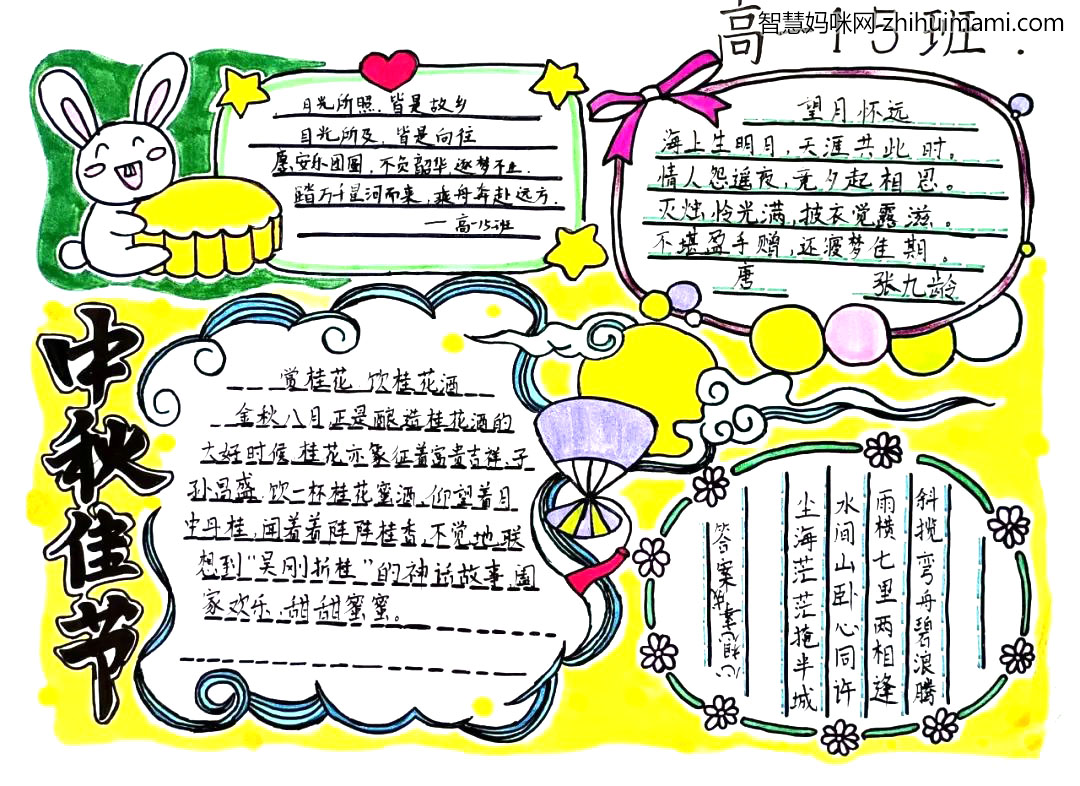 智慧妈咪网-zhihuimami.com
高一15班.
月光所照.皆是故乡
目光所及,皆是向往
愿安乐团圆,不负韶华,逐梦不止.
踏万千星河而来,乘舟奔赴远方.
——高一15班
望月怀远
海上生明月,天涯共此时。
情人怨遥夜,竟夕起相思。
灭烛怜光满,披衣觉露滋。
不堪盈手赠,还寝梦佳期。
唐 张九龄
中秋佳节
赏桂花 饮桂花酒
金秋八月正是酿造桂花酒的
大好时候,桂花亦象征着富贵吉祥、子
孙昌盛,饮一杯桂花蜜酒,仰望着月
中丹桂,闻着着阵阵桂香,不觉地联
想到“吴刚折桂”的神话故事,阖
家欢乐,甜甜蜜蜜。
斜揽弯舟碧浪腾
雨横七里两相逢
水间山卧心同许
尘海茫茫掩半城
答案